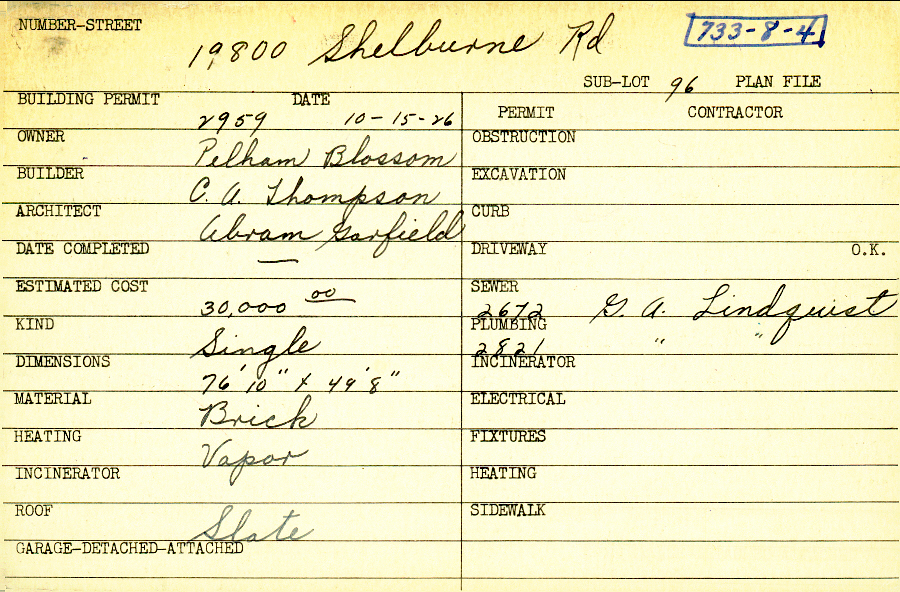 NUMBER-STREET 19800 Shelburne Rd 733-8-4
SUB-LOT 96 PLAN FILE
BUILDING PERMIT 2959 DATE 10-15-26
OWNER Pelham Blossom
BUILDER C. A. Thompson
ARCHITECT Abram Garfield
DATE COMPLETED —
ESTIMATED COST 30,000 00
KIND Single
DIMENSIONS 76' 10" x 49' 8"
MATERIAL Brick
HEATING Vapor
INCINERATOR
ROOF Slate
GARAGE-DETACHED-ATTACHED
PERMIT CONTRACTOR
OBSTRUCTION
EXCAVATION
CURB
DRIVEWAY O.K.
SEWER 2672 G. A. Lindquist
PLUMBING 2821 " "
INCINERATOR
ELECTRICAL
FIXTURES
HEATING
SIDEWALK